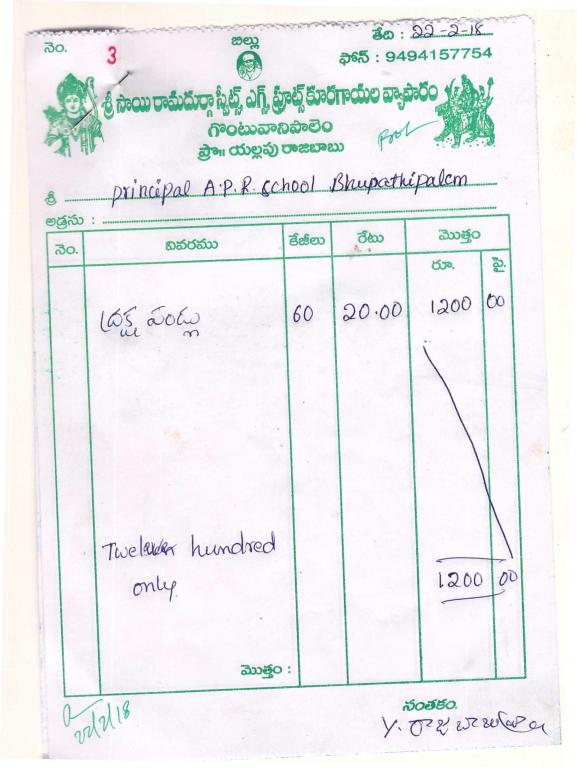 నెం. 3 బిల్లు తేది : 22-2-18
ఫోన్ : 9494157754
శ్రీ సాయి రామదుర్గా స్వీట్స్, ఎగ్స్, ఫ్రూట్స్ కూరగాయల వ్యాపారం
గొంటువానిపాలెం
ప్రొ॥ యల్లపు రాజబాబు
శ్రీ principal A.P.R. School Bhupathipalem
అడ్రసు :
నెం. వివరము కేజీలు రేటు మొత్తం
రూ. పై.
ద్రాక్ష పండ్లు 60 20.00 1200 00
hundred
only. 1200 00
మొత్తం :
సంతకం.
22/2/18 Y. రాజబాబు